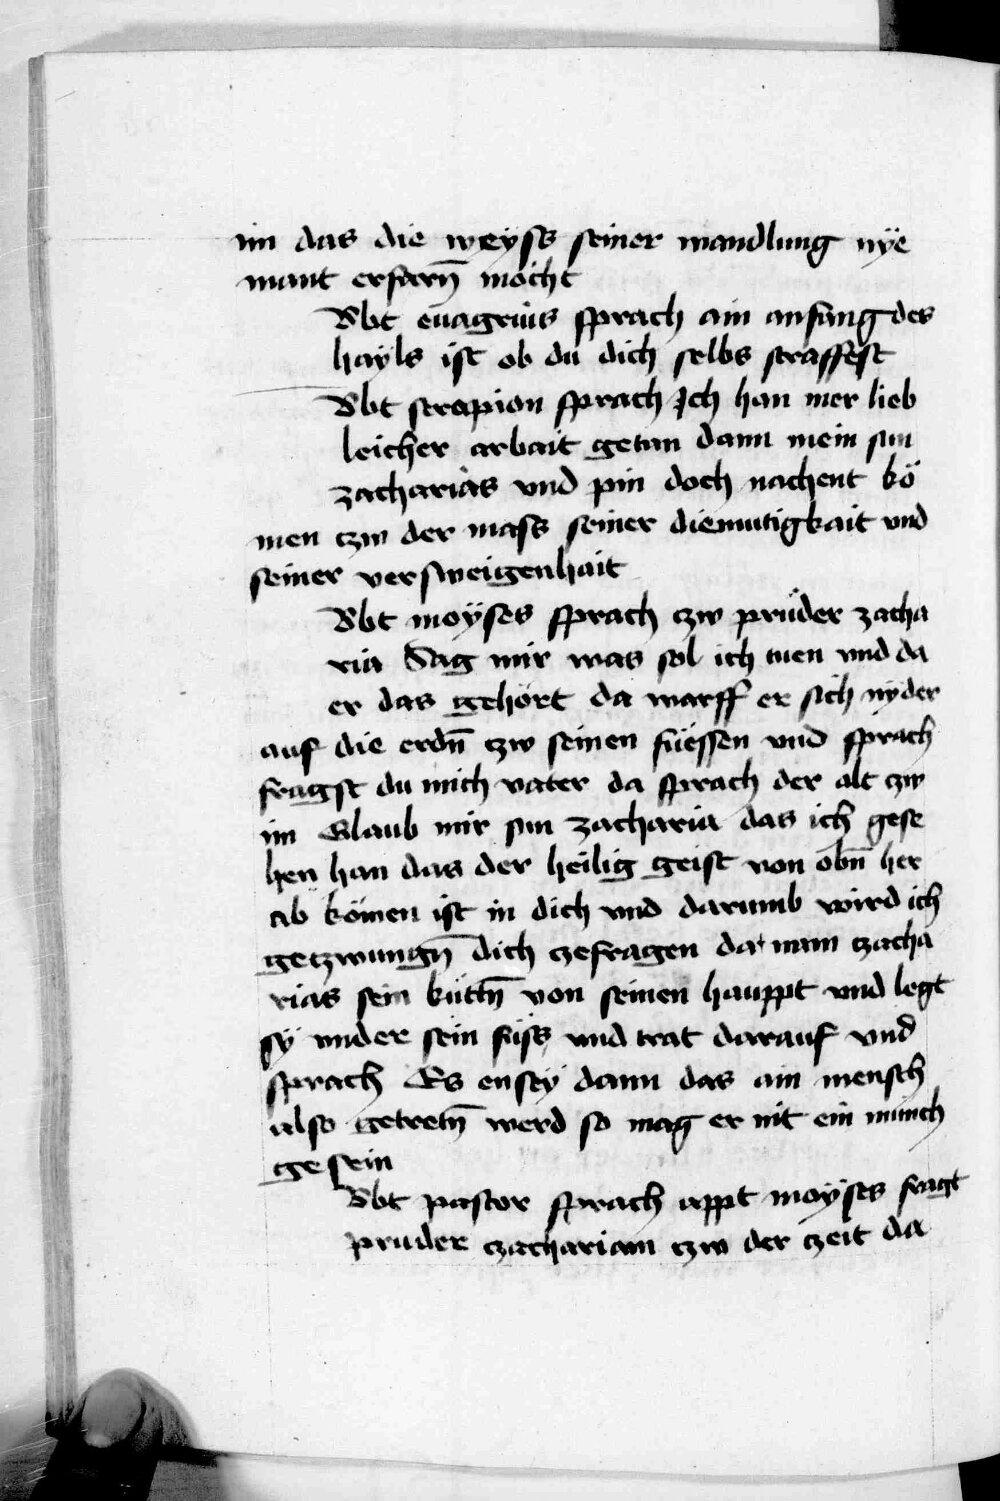 im das die weyss seiner wandlung nye
mant erfarn̄ möcht
Abt euagrius sprach ain anfang des
hayls ist ob du dich selbs straffest
Abt serapion sprach Ich han mer lieb
leicher arbait getan dann mein sun
zacharias vnd pin doch nachent kö
men czw der mass seiner diemutigkait vnd
seiner versweigenhait
Abt moÿses sprach czw prüder zacha
ria Sag mir was sol ich tuen vnd da
er das gehört da warff er sich nÿder
auf die erdn̄ czw seinen füessen vnd sprach
fragst du mich vater da sprach der alt czw
im Glaub mir sun zacharia das ich gese
hen han das der heilig geist von obn̄ her
ab kömen ist in dich vnd darumb wird ich
geczwungn̄ dich czefragen da nam czacha
rias sein küttn̄ von seinen hauppt vnd legt
sÿ vnder sein füss vnd trat darauf vnd
sprach Es ensey dann das ain mensch
also getretn̄ werd so mag er nit ein münch
gesein
Abt pastor sprach appt moÿses fragt
pruder czachariam czw der czeit da